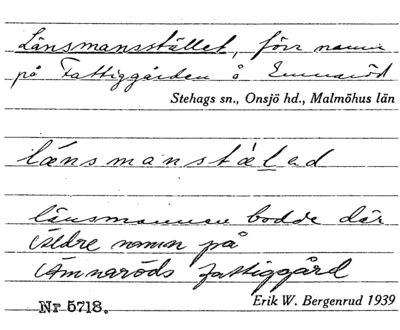 Länsmansstället, förr namn
på Fattiggården å Emmaröd
Stehags sn., Onsjö hd., Malmöhus län
länsmanstä́led
länsmannen bodde där
Äldre namn på
Ämnaröds fattiggård
Nr 5718. Erik W. Bergenrud 1939